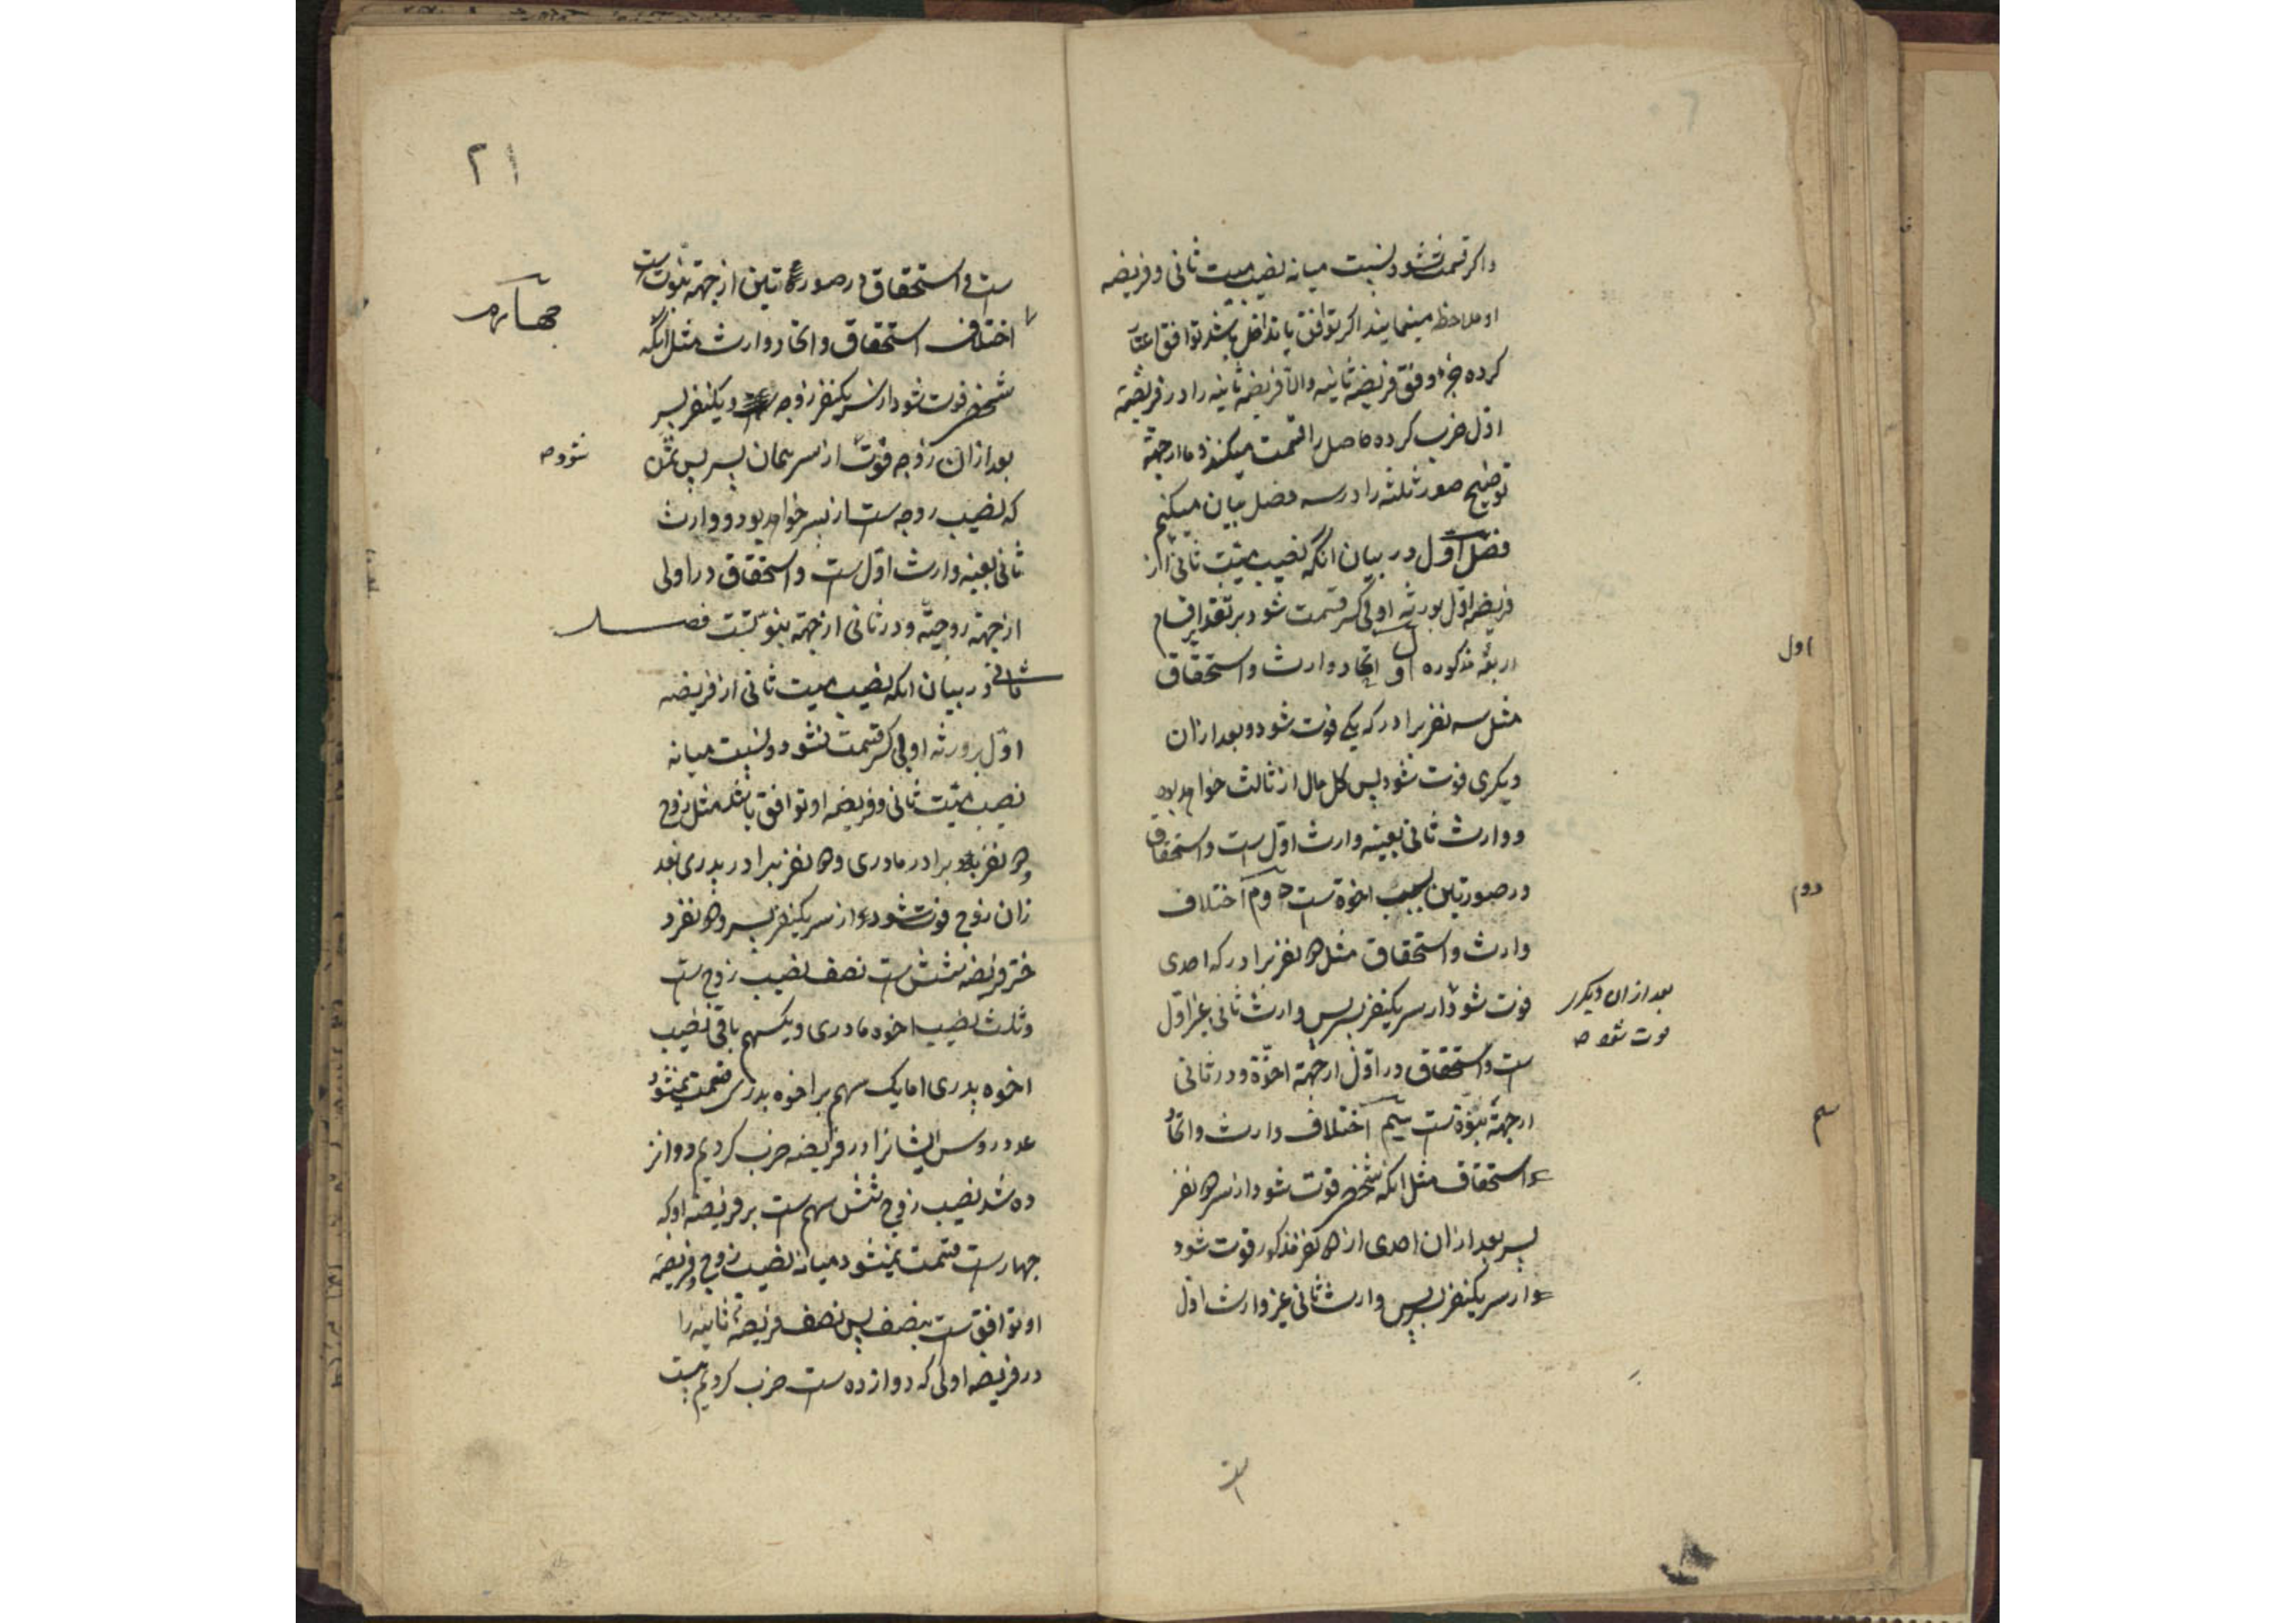 واکر قسمت نشود نسبت میانه نصیب میت ثانی و فریضه
او ملاحظه مینمایند اکر توافق یا تداخل باشد توافق اعتبار
کرده جزء وفق فریضه ثانیه والا فریضه ثانیه را در فریضه
اول ضرب کرده حاصل را قسمت میکنند و ما از جهة
توضیح صور ثلثه را در سه فصل بیان میکنیم
فصل اول در بیان انکه نصیب میت ثانی از
فریضه اول بورثه او بی کسر قسمت شود بر تقدیر اقسام
اربعه مذکوره اول اتحاد وارث و استحقاق
مثل سه نفر برادر که یکی فوت شود و بعد ازان
دیکری فوت شود پس کل مال از ثالث خواهد بود
و وارث ثانی بعینه وارث اول است و استحقاق
در صورتین بسبب اخوة است دوم اختلاف
وارث و استحقاق مثل دو نفر برادر که احدی
فوت شود از سر یکنفر پسر پس وارث ثانی غیر اول
است و استحقاق در اول از جهة اخوة و در ثانی
از جهة بنوة است سیم اختلاف وارث و اتحاد
استحقاق مثل انکه شخصی فوت شود از سر دو نفر
پسر بعد ازان احدی از دو نفر مذکور فوت شود
از سر یکنفر پسر پس وارث ثانی غیر وارث اول
است
اول
دوم
بعد ازان دیکر
فوت شود صح
سیم
۲۱
است و استحقاق در صورتین از جهة بنوت است
اختلاف استحقاق و اتحاد وارث مثل انکه
شخصی فوت شود از سر یکنفر زوجه و یکنفر پسر
بعد ازان زوجه فوت از سر همان پسر پس ثمن
که نصیب زوجه است از پسر خواهد بود و وارث
ثانی بعینه وارث اول است و استحقاق در اولی
از جهة زوجیة و در ثانی از جهة بنوتست فصل
ثانی در بیان انکه نصیب میت ثانی از فریضه
اول بر ورثه او بی کسر قسمت نشود و نسبت میانه
نصیب میت ثانی و فریضه او توافق باشد مثل زوج
و دو نفر برادر مادری و دو نفر برادر پدری بعد
ازان زوج فوت شود از سر یکنفر پسر و دو نفر د
ختر فریضه شش است نصف نصیب زوج است
و ثلث نصیب اخوه مادری و یکسهم باقی نصیب
اخوه پدری اما یک سهم بر اخوه پدری قسمت نمیشود
عدد روس ایشانرا در فریضه ضرب کردیم دواز
ده شد نصیب زوج شش سهم است بر فریضه او که
چهار است قسمت نمیشود میانه نصیب زوج و فریضه
او توافق است بنصف پس نصف فریضه ثانیه را
در فریضه اولی که دوازده است ضرب کردیم بیست
چهارم
شود صح